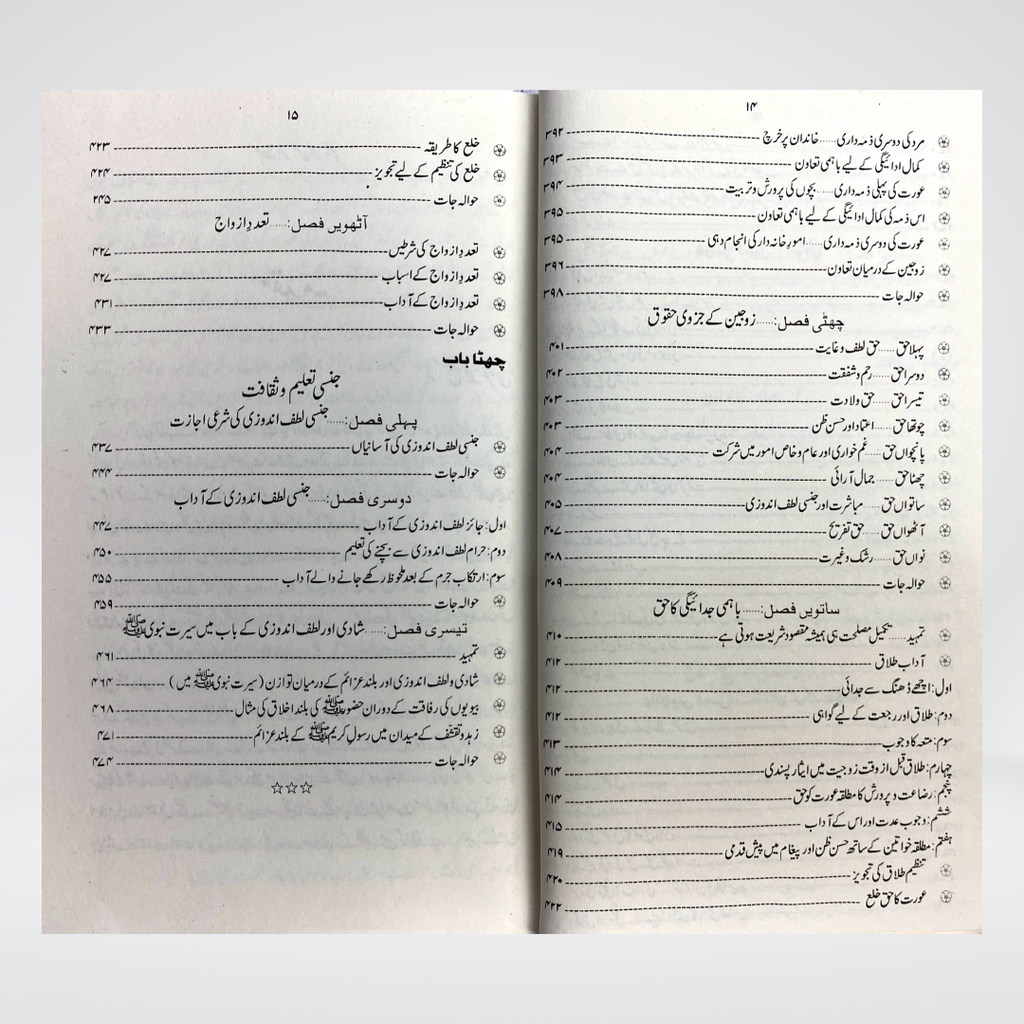 ۱۴
مرد کی دوسری ذمہ داری......خاندان پر خرچ ---------- ۳۹۲
کمال ادائیگی کے لیے باہمی تعاون ---------- ۳۹۳
عورت کی پہلی ذمہ داری......بچوں کی پرورش و تربیت ---------- ۳۹۴
اس ذمہ کی کمال ادائیگی کے لیے باہمی تعاون ---------- ۳۹۵
عورت کی دوسری ذمہ داری......امورِ خانہ دار کی انجام دہی ---------- ۳۹۵
زوجین کے درمیان تعاون ---------- ۳۹۶
حوالہ جات ---------- ۳۹۸
چھٹی فصل:......زوجین کے جزوی حقوق
پہلا حق......حق لطف و عنایت ---------- ۴۰۱
دوسرا حق......رحم و شفقت ---------- ۴۰۲
تیسرا حق......حق ولادت ---------- ۴۰۳
چوتھا حق......اعتماد اور حسن ظن ---------- ۴۰۳
پانچواں حق......غم خواری اور عام و خاص امور میں شرکت ---------- ۴۰۴
چھٹا حق......جمال آرائی ---------- ۴۰۴
ساتواں حق......مباشرت اور جنسی لطف اندوزی ---------- ۴۰۵
آٹھواں حق......حق تفریح ---------- ۴۰۷
نواں حق......رشک و غیرت ---------- ۴۰۸
حوالہ جات ---------- ۴۰۹
ساتویں فصل:......باہمی جدائیگی کا حق
تمہید......تکمیل مصلحت ہی ہمیشہ مقصود شریعت ہوتی ہے ---------- ۴۱۰
آداب طلاق ---------- ۴۱۲
اول: اچھے ڈھنگ سے جدائی ---------- ۴۱۲
دوم: طلاق اور رجعت کے لیے گواہی ---------- ۴۱۲
سوم: متعہ کا وجوب ---------- ۴۱۳
چہارم: طلاق قبل از وقت زوجیت میں ایثار پسندی ---------- ۴۱۴
پنجم: رضاعت و پرورش کا مطلقہ عورت کو حق ---------- ۴۱۴
ششم: وجوب عدت اور اس کے آداب ---------- ۴۱۵
ہفتم: مطلقہ خواتین کے ساتھ حسن ظن اور پیغام میں پیش قدمی ---------- ۴۱۹
تنظیم طلاق کی تجویز ---------- ۴۲۰
عورت کا حق خلع ---------- ۴۲۲
۱۵
خلع کا طریقہ ---------- ۴۲۳
خلع کی تنظیم کے لیے تجویز ---------- ۴۲۴
حوالہ جات ---------- ۲۴۵
آٹھویں فصل:......تعددِ ازواج
تعددِ ازواج کی شرطیں ---------- ۴۲۷
تعددِ ازواج کے اسباب ---------- ۴۲۷
تعددِ ازواج کے آداب ---------- ۴۳۱
حوالہ جات ---------- ۴۳۳
چھٹا باب
جنسی تعلیم و ثقافت
پہلی فصل:......جنسی لطف اندوزی کی شرعی اجازت
جنسی لطف اندوزی کی آسانیاں ---------- ۴۳۷
حوالہ جات ---------- ۴۴۴
دوسری فصل:......جنسی لطف اندوزی کے آداب
اول: جائز لطف اندوزی کے آداب ---------- ۴۴۷
دوم: حرام لطف اندوزی سے بچنے کی تعلیم ---------- ۴۵۰
سوم: ارتکاب جرم کے بعد ملحوظ رکھے جانے والے آداب ---------- ۴۵۵
حوالہ جات ---------- ۴۵۹
تیسری فصل:......شادی اور لطف اندوزی کے باب میں سیرت نبوی ﷺ
تمہید ---------- ۴۶۱
شادی و لطف اندوزی اور بلند عزائم کے درمیان توازن (سیرت نبوی ﷺ میں) ---------- ۴۶۴
بیویوں کی رفاقت کے دوران حضور ﷺ کی بلند اخلاق کی مثال ---------- ۴۶۸
زہد و تقشف کے میدان میں رسول کریم ﷺ کے بلند عزائم ---------- ۴۷۱
حوالہ جات ---------- ۴۷۴
☆☆☆